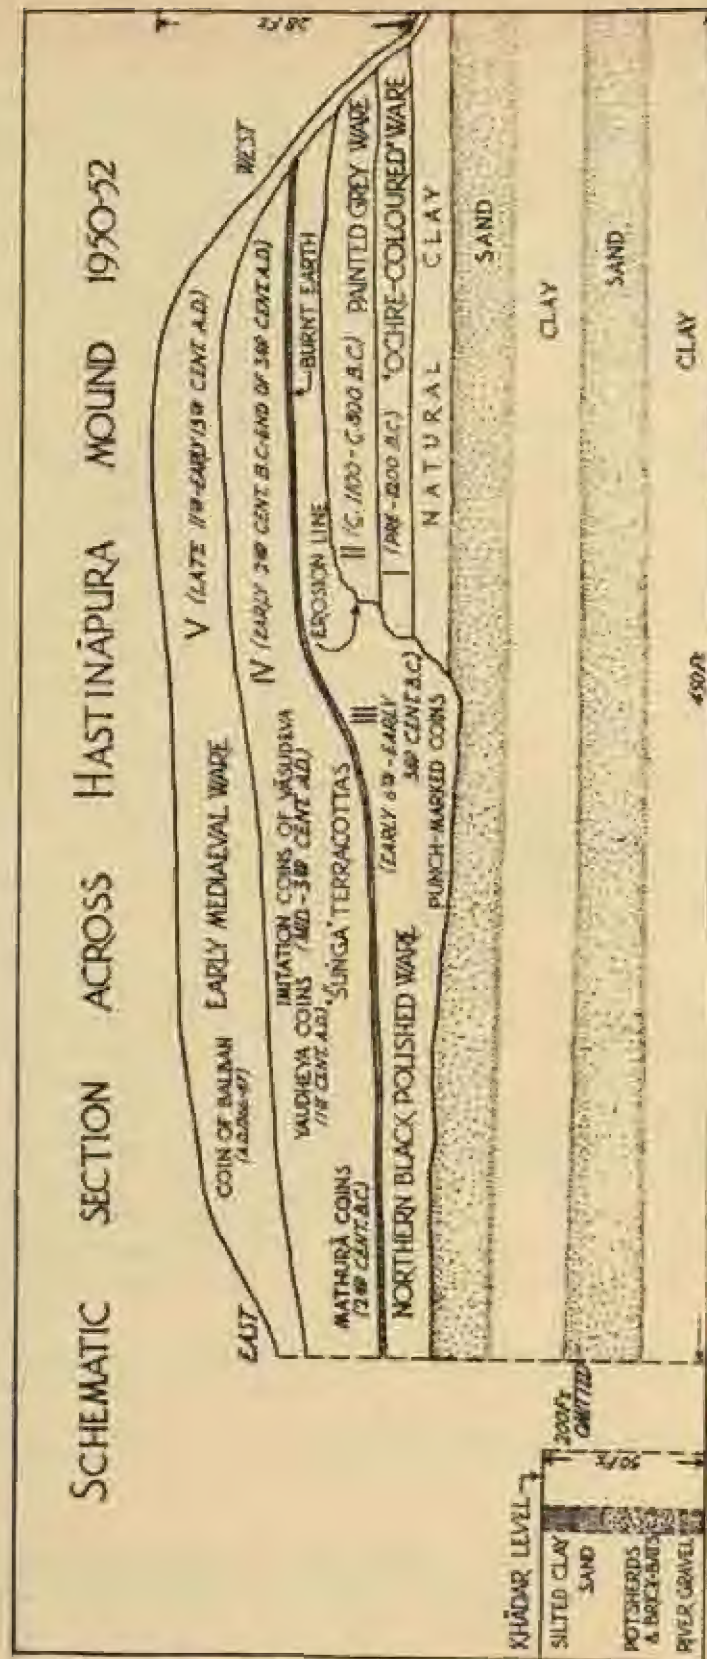 SCHEMATIC SECTION ACROSS HASTINĀPURA MOUND 1950-52
EAST
WEST
28 Ft
COIN OF BALBAN
EARLY MEDIAEVAL WARE
V (LATE 11TH-EARLY 15TH CENT. A.D.)
IV (EARLY 2ND CENT. B.C-END OF 3RD CENT. A.D)
IMITATION COINS OF VĀSUDEVA
(MID.-3RD CENT. A.D.)
YAUDHEYA COINS
'SUṄGA' TERRACOTTAS
MATHURĀ COINS
(2ND CENT. B.C)
BURNT EARTH
EROSION LINE
III
(EARLY 6TH-EARLY
3RD CENT B.C.)
NORTHERN BLACK POLISHED WARE
PUNCH-MARKED COINS
II (C. 1100-C. 800 B.C) PAINTED GREY WARE
I (PRE-1200 B.C) 'OCHRE-COLOURED' WARE
NATURAL CLAY
SAND
CLAY
SAND
CLAY
450 Ft
200 Ft
OMITTED
50 Ft
KHĀDAR LEVEL
SILTED CLAY
SAND
POTSHERDS
& BRICK-BATS
RIVER GRAVEL